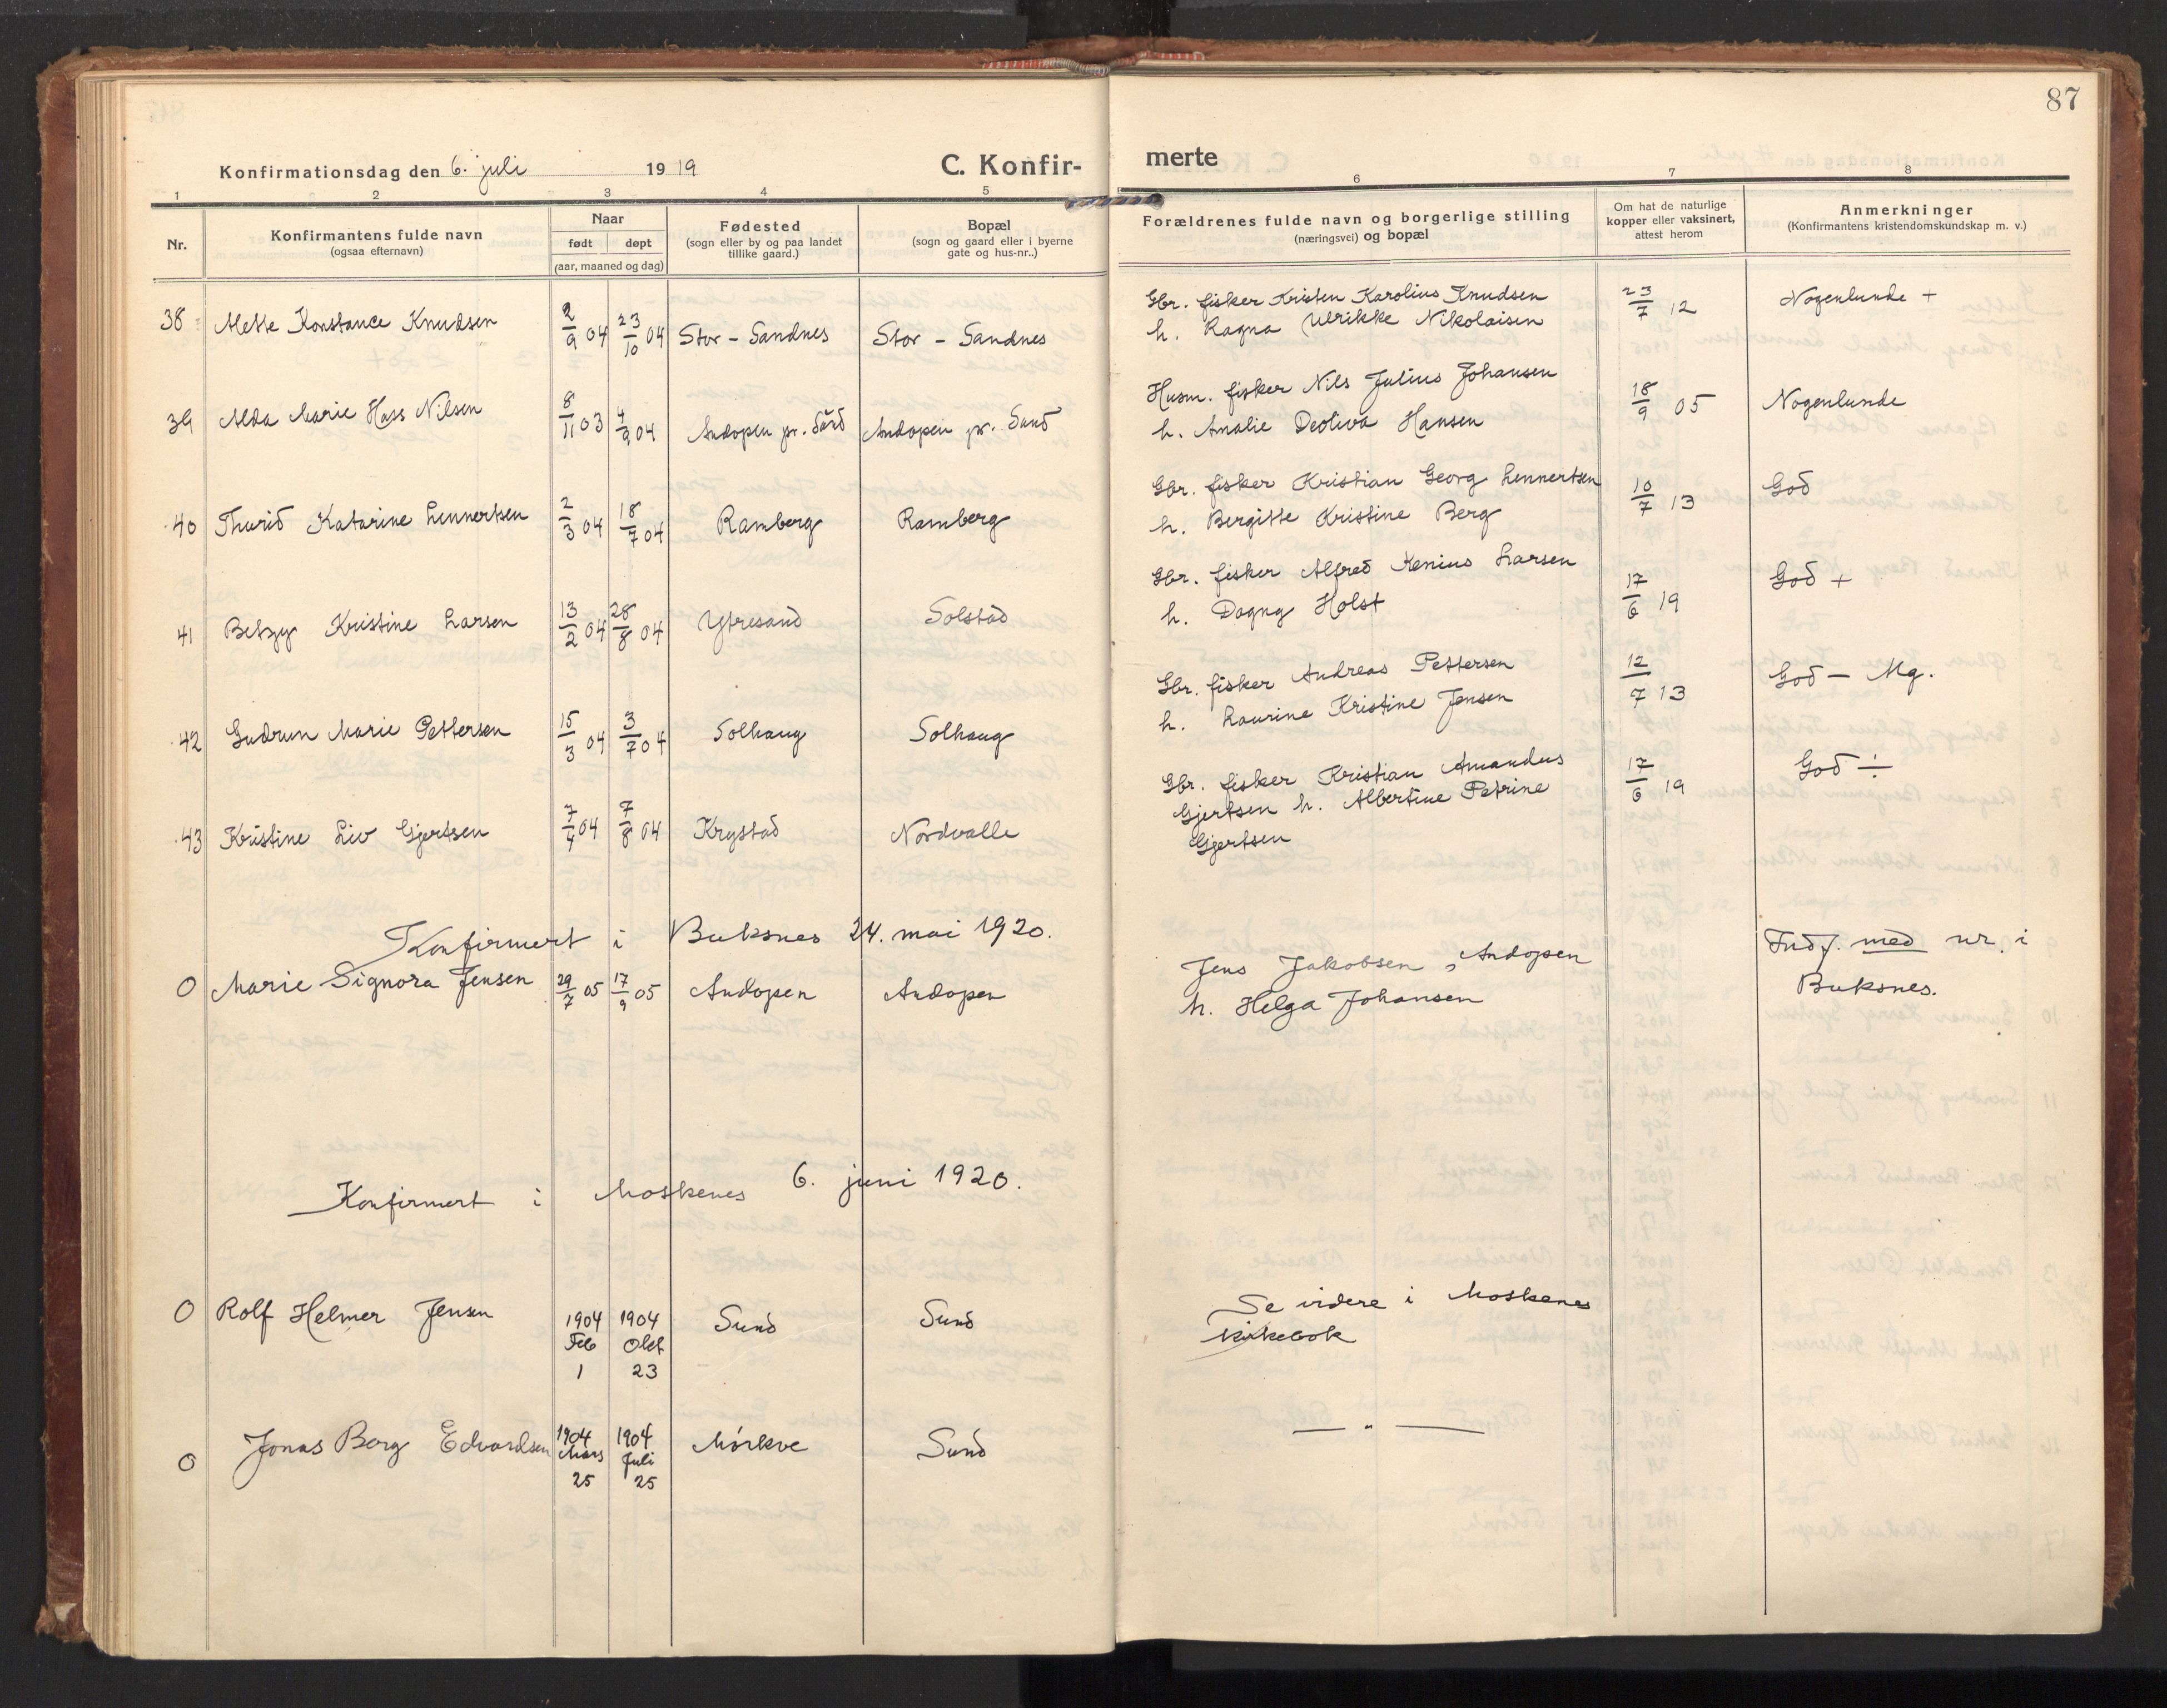 87
Konfirmationsdag den 6. juli 1919 C. Konfir-merte
1 2 3 4 5 6 7 8
Nr. Konfirmantens fulde navn (ogsaa efternavn) Naar født døpt (aar, maaned og dag) Fødested (sogn eller by og paa landet tillike gaard.) Bopæl (sogn og gaard eller i byerne gate og hus-nr..) Forældrenes fulde navn og borgerlige stilling (næringsvei) og bopæl Om hat de naturlige kopper eller vaksinert, attest herom Anmerkninger (Konfirmantens kristendomskundskap m. v.)
38 Mette Konstance Knudsen 2/9 04 23/10 04 Stor - Sandnes Stor - Sandnes Gbr. fisker Kristen Karolius Knudsen 23/7 12 Nogenlunde +
h. Ragna Ulrikke Nikolaisen
39 Alda Marie Hass Nilsen 8/11 03 4/9 04 Andopen pr. Sund Andopen pr. Sund Husm. fisker Nils Julius Johansen 18/9 05 Nogenlunde
h. Amalie Deoliva Hansen
40 Thurid Katarine Lennertsen 2/3 04 18/7 04 Ramberg Ramberg Gbr. fisker Kristian Georg Lennertsen 10/7 13 God
h. Bergitte Kristine Berg
41 Betzy Kristine Larsen 13/2 04 28/8 04 Ytresand Solstad Gbr. fisker Alfred Kenius Larsen 17/6 19 God +
h. Dagny Holst
42 Gudrun Marie Pettersen 15/3 04 3/7 04 Solhaug Solhaug Gbr. fisker Andreas Pettersen 12/7 13 God - Mg.
h. Laurine Kristine Jensen
43 Kristine Liv Gjertsen 7/4 04 7/8 04 Krystad Nordvalle Gbr. fisker Kristian Amandus 17/6 19 God ÷
Gjertsen h. Albertine Petrine
Gjertsen
Konfirmert i Buksnes 24. mai 1920.
0 Marie Signora Jensen 29/7 05 17/9 05 Andopen Andopen Jens Jakobsen, Andopen Indf. med nr. i
h. Helga Johansen Buksnes.
Konfirmert i Moskenes 6. juni 1920.
0 Rolf Helmer Jensen 1904 Feb 1 1904 Okt 23 Sund Sund Se videre i Moskenes
kirkebok
0 Jonas Berg Edvardsen 1904 Mars 25 1904 Juli 25 Mørkve Sund — " —